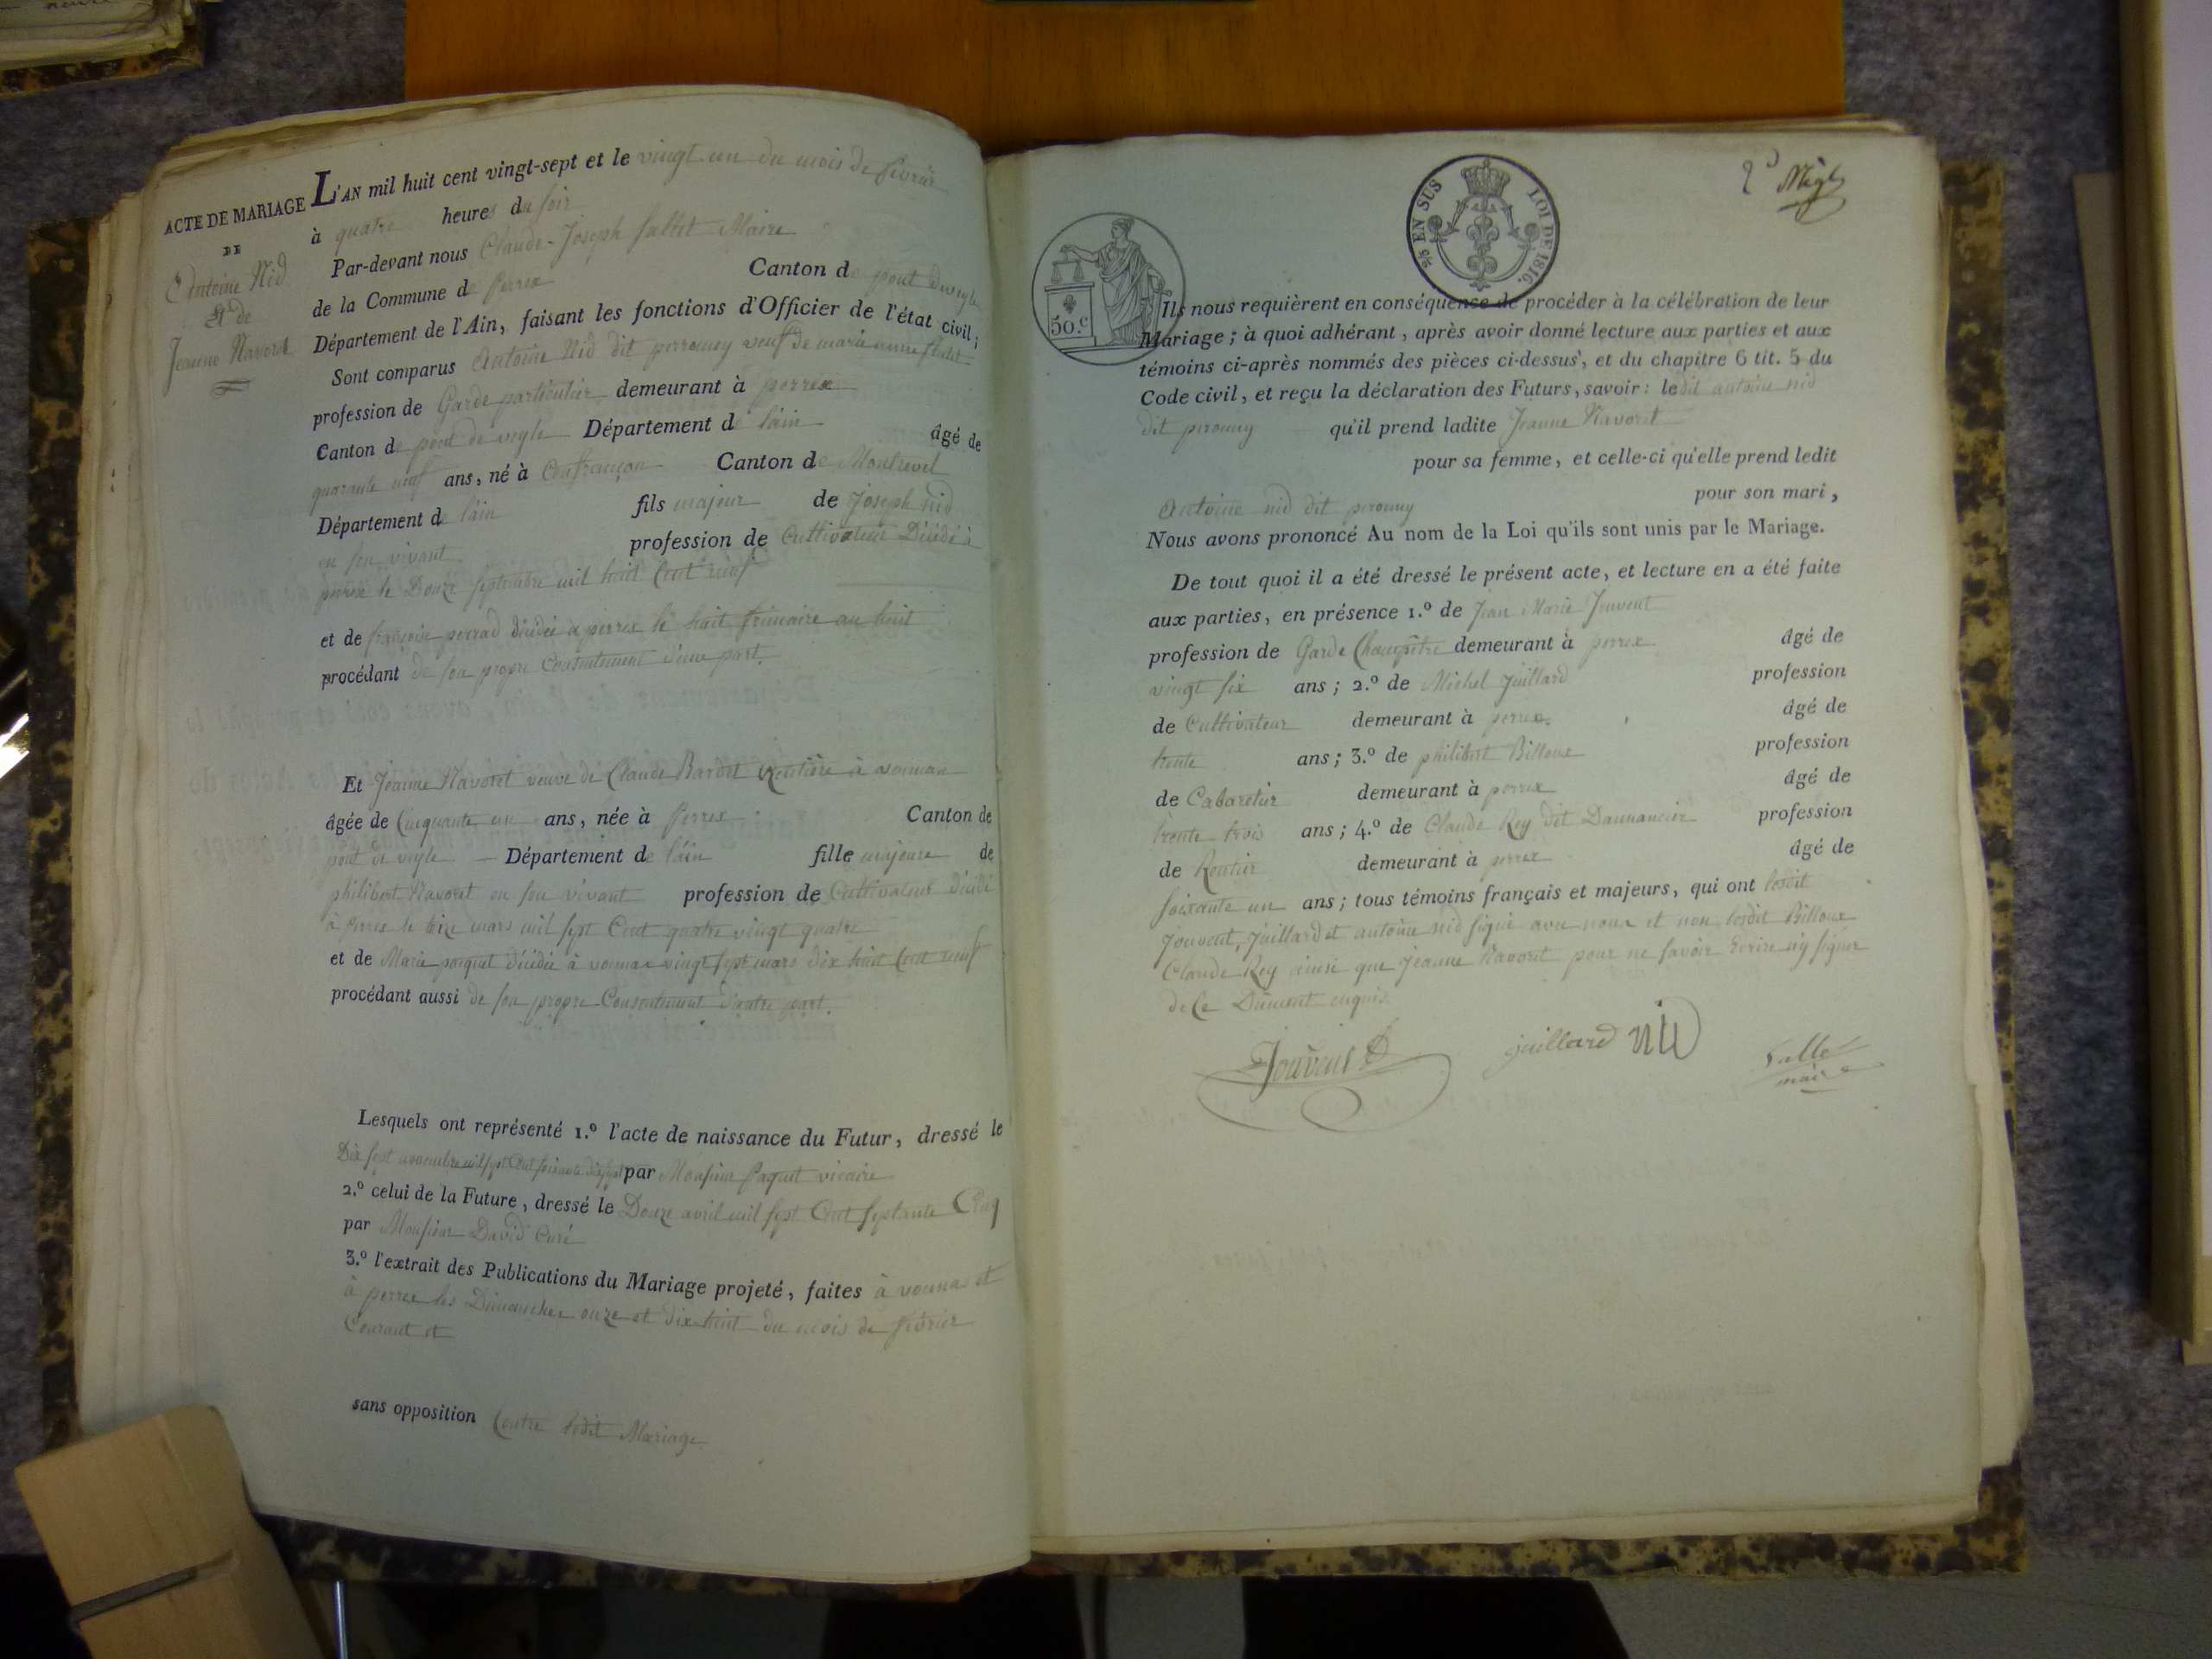 ACTE DE MARIAGE
DE
Antoine Nid
Et de
Jeanne Navoret
L'AN mil huit cent vingt-sept et le vingt un du mois de février
à quatre heures du soir
Par-devant nous Claude-Joseph Maire
de la Commune de Perrex Canton de pont de veyle
Département de l'Ain, faisant les fonctions d'Officier de l'état civil;
Sont comparus Antoine Nid dit perroury veuf de marie anne
profession de Garde particulier demeurant à perrex
Canton de pont de veyle Département de l'ain âgé de
quarante neuf ans, né à Confrançon Canton de Montrevel
Département de l'ain fils majeur de Joseph nid
en son vivant profession de Cultivateur Décédé à
perrex le Douze septembre mil huit Cent neuf
et de françoise perrad décédée à perrex le huit frimaire an huit
procédant de son propre Consentement d'une part.
Et Jeanne Navoret veuve de Claude Bardet Rentière à vonnas
âgée de Cinquante un ans, née à Perrex Canton de
pont de veyle Département de l'ain fille majeure de
philibert Navoret en son vivant profession de Cultivateur décédé
à perrex le treize mars mil sept Cent quatre vingt quatre
et de Marie paquet décédée à vonnas vingt sept mars dix huit Cent neuf
procédant aussi de son propre Consentement d'autre part.
Lesquels ont représenté 1.º l'acte de naissance du Futur, dressé le
Dix sept novembre mil sept Cent soixante dix sept par Monsieur Paquet vicaire
2.º celui de la Future, dressé le Douze avril mil sept Cent septante Cinq
par Monsieur David Curé
3.º l'extrait des Publications du Mariage projeté, faites à vonnas et
à perrex les Dimanches onze et dix huit du mois de février
Courant et
sans opposition Contre ledit Mariage
50.c
EN SUS LOI DE 1816.
Ils nous requièrent en conséquence de procéder à la célébration de leur
Mariage; à quoi adhérant, après avoir donné lecture aux parties et aux
témoins ci-après nommés des pièces ci-dessus, et du chapitre 6 tit. 5 du
Code civil, et reçu la déclaration des Futurs, savoir: ledit antoine nid
dit perroury qu'il prend ladite Jeanne Navoret
pour sa femme, et celle-ci qu'elle prend ledit
Antoine nid dit perroury pour son mari,
Nous avons prononcé Au nom de la Loi qu'ils sont unis par le Mariage.
De tout quoi il a été dressé le présent acte, et lecture en a été faite
aux parties, en présence 1.º de Jean Marie Jouvent
profession de Garde Champêtre demeurant à perrex âgé de
vingt six ans; 2.º de Michel Juillard profession
de Cultivateur demeurant à perrex âgé de
trente ans; 3.º de philibert Billoux profession
de Cabaretier demeurant à perrex âgé de
trente trois ans; 4.º de Claude Rey dit Dannancier profession
de Rentier demeurant à perrex âgé de
soixante un ans; tous témoins français et majeurs, qui ont lesdit
Jouvent, Juillard et antoine nid signé avec nous et non lesdit Billoux
Claude Rey ainsi que Jeanne Navoret pour ne savoir Ecrire ny signer
de Ce Dûment enquis
Jouvent
juillard nid
maire